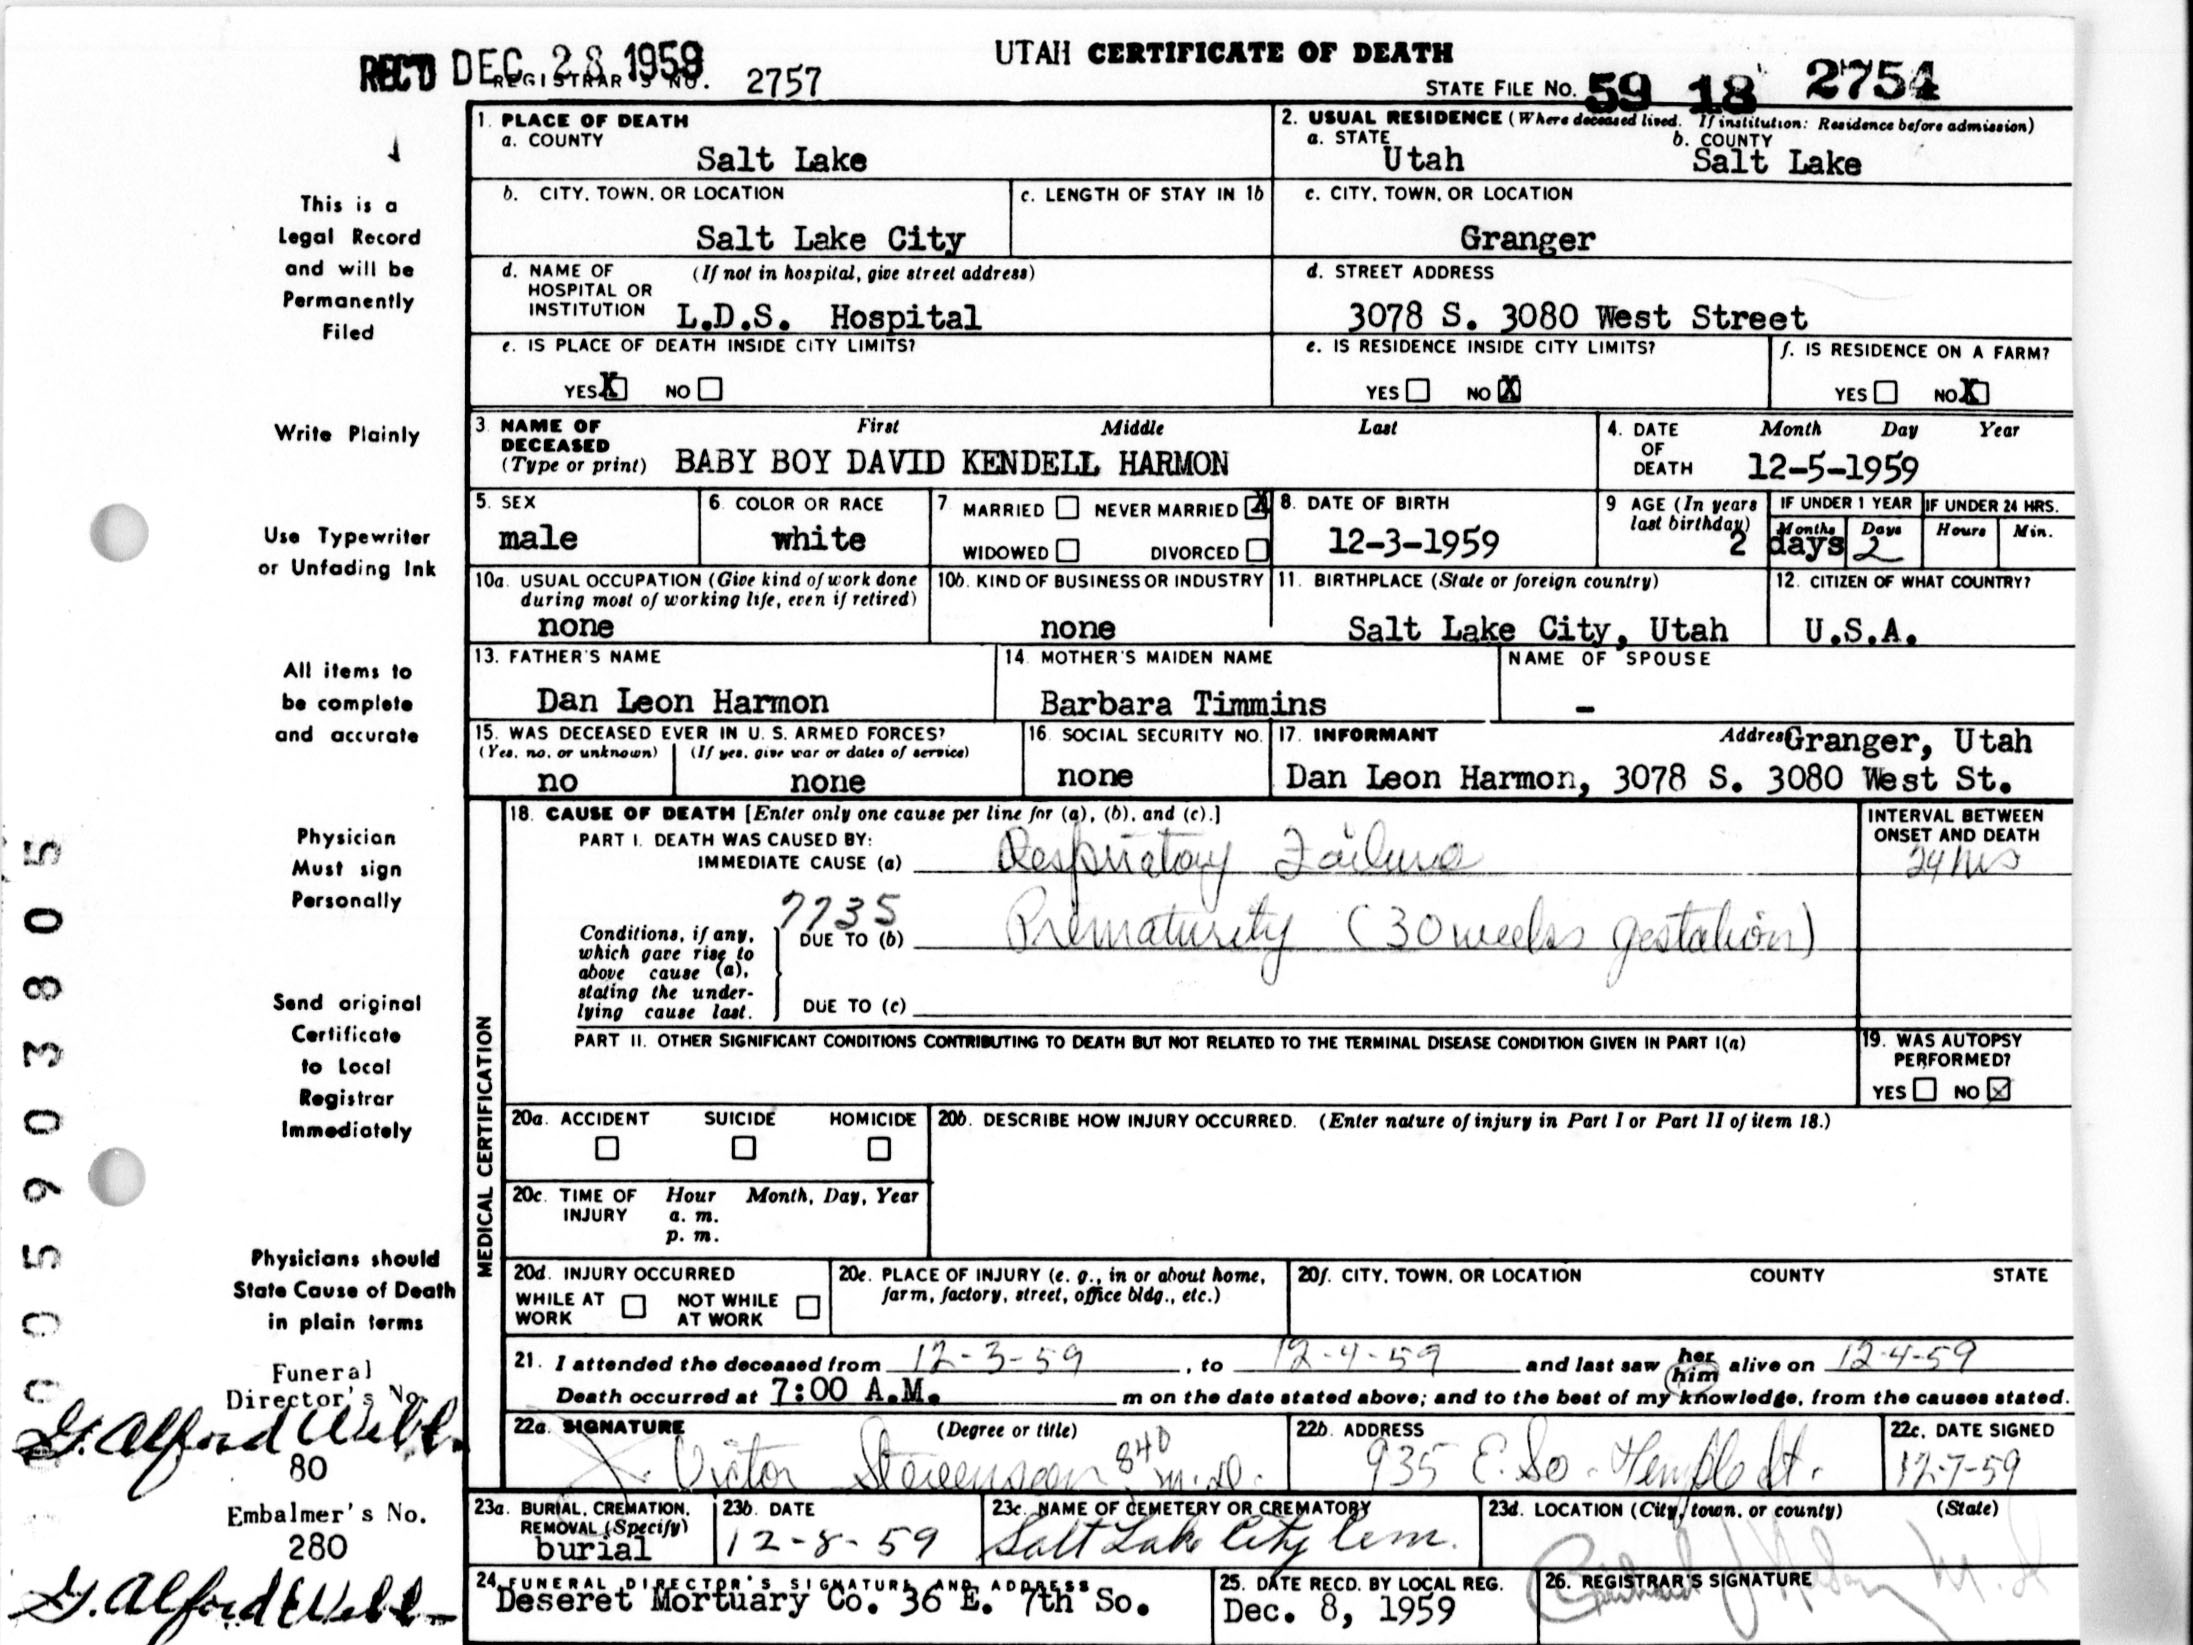 REC'D DEC 28 1959
REGISTRAR'S NO. 2757
UTAH CERTIFICATE OF DEATH
STATE FILE NO. 59 18 2754
1. PLACE OF DEATH
a. COUNTY
Salt Lake
2. USUAL RESIDENCE (Where deceased lived. If institution: Residence before admission)
a. STATE
Utah
b. COUNTY
Salt Lake
b. CITY, TOWN, OR LOCATION
Salt Lake City
c. LENGTH OF STAY IN 1b
c. CITY, TOWN, OR LOCATION
Granger
d. NAME OF HOSPITAL OR INSTITUTION
(If not in hospital, give street address)
L.D.S. Hospital
d. STREET ADDRESS
3078 S. 3080 West Street
e. IS PLACE OF DEATH INSIDE CITY LIMITS?
YES X NO
e. IS RESIDENCE INSIDE CITY LIMITS?
YES NO X
f. IS RESIDENCE ON A FARM?
YES NO X
3. NAME OF DECEASED (Type or print)
First Middle Last
BABY BOY DAVID KENDELL HARMON
4. DATE OF DEATH
Month Day Year
12-5-1959
5. SEX
male
6. COLOR OR RACE
white
7 MARRIED NEVER MARRIED X
WIDOWED DIVORCED
8. DATE OF BIRTH
12-3-1959
9 AGE (In years last birthday)
2
IF UNDER 1 YEAR
Months Days
days 2
IF UNDER 24 HRS.
Hours Min.
10a. USUAL OCCUPATION (Give kind of work done during most of working life, even if retired)
none
10b. KIND OF BUSINESS OR INDUSTRY
none
11. BIRTHPLACE (State or foreign country)
Salt Lake City, Utah
12. CITIZEN OF WHAT COUNTRY?
U.S.A.
13. FATHER'S NAME
Dan Leon Harmon
14. MOTHER'S MAIDEN NAME
Barbara Timmins
NAME OF SPOUSE
-
15. WAS DECEASED EVER IN U. S. ARMED FORCES?
(Yes, no, or unknown) (If yes, give war or dates of service)
no none
16. SOCIAL SECURITY NO.
none
17. INFORMANT
Address Granger, Utah
Dan Leon Harmon, 3078 S. 3080 West St.
MEDICAL CERTIFICATION
18. CAUSE OF DEATH [Enter only one cause per line for (a), (b), and (c).]
PART I. DEATH WAS CAUSED BY:
IMMEDIATE CAUSE (a) Respiratory Failure
INTERVAL BETWEEN ONSET AND DEATH
24 hrs
7735
Conditions, if any, which gave rise to above cause (a), stating the underlying cause last.
DUE TO (b) Prematurity (30 weeks gestation)
DUE TO (c)
PART II. OTHER SIGNIFICANT CONDITIONS CONTRIBUTING TO DEATH BUT NOT RELATED TO THE TERMINAL DISEASE CONDITION GIVEN IN PART I(a)
19. WAS AUTOPSY PERFORMED?
YES NO X
20a. ACCIDENT SUICIDE HOMICIDE
20b. DESCRIBE HOW INJURY OCCURRED. (Enter nature of injury in Part I or Part II of item 18.)
20c. TIME OF INJURY
Hour Month, Day, Year
a. m.
p. m.
20d. INJURY OCCURRED
WHILE AT WORK NOT WHILE AT WORK
20e. PLACE OF INJURY (e. g., in or about home, farm, factory, street, office bldg., etc.)
20f. CITY, TOWN, OR LOCATION COUNTY STATE
21. I attended the deceased from 12-3-59, to 12-4-59 and last saw her him alive on 12-4-59
Death occurred at 7:00 A.M. m on the date stated above; and to the best of my knowledge, from the causes stated.
22a. SIGNATURE (Degree or title)
X Victor Stevenson 840 M.D.
22b. ADDRESS
935 E. So. Temple St.
22c. DATE SIGNED
12-7-59
23a. BURIAL, CREMATION, REMOVAL (Specify)
burial
23b. DATE
12-8-59
23c. NAME OF CEMETERY OR CREMATORY
Salt Lake City Cem.
23d. LOCATION (City, town, or county) (State)
24. FUNERAL DIRECTOR'S SIGNATURE AND ADDRESS
Deseret Mortuary Co. 36 E. 7th So.
25. DATE RECD. BY LOCAL REG.
Dec. 8, 1959
26. REGISTRAR'S SIGNATURE
This is a
Legal Record
and will be
Permanently
Filed
Write Plainly
Use Typewriter
or Unfading Ink
All items to
be complete
and accurate
Physician
Must sign
Personally
Send original
Certificate
to Local
Registrar
Immediately
Physicians should
State Cause of Death
in plain terms
Funeral
Director's No.
G. Alford Webb
80
Embalmer's No.
280
G. Alford Webb